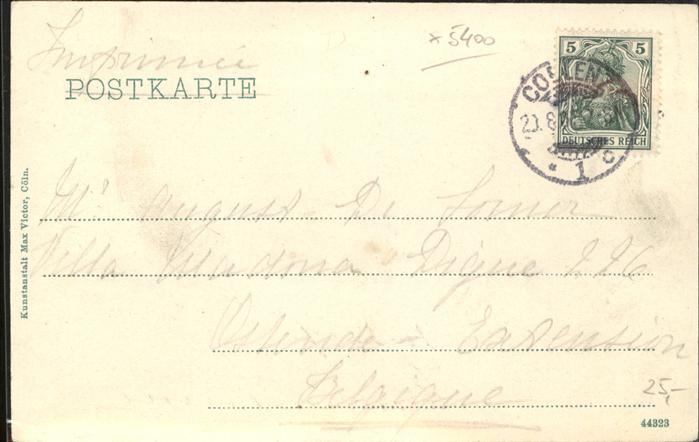 Imprimé
POSTKARTE
x5400
5 5
DEUTSCHES REICH
COBLENZ
* 1 c
Mr August De Somer
Villa Madona Digue 226
Ostende - Extension
Belgique
25,-
44323
Kunstanstalt Max Victor, Cöln.